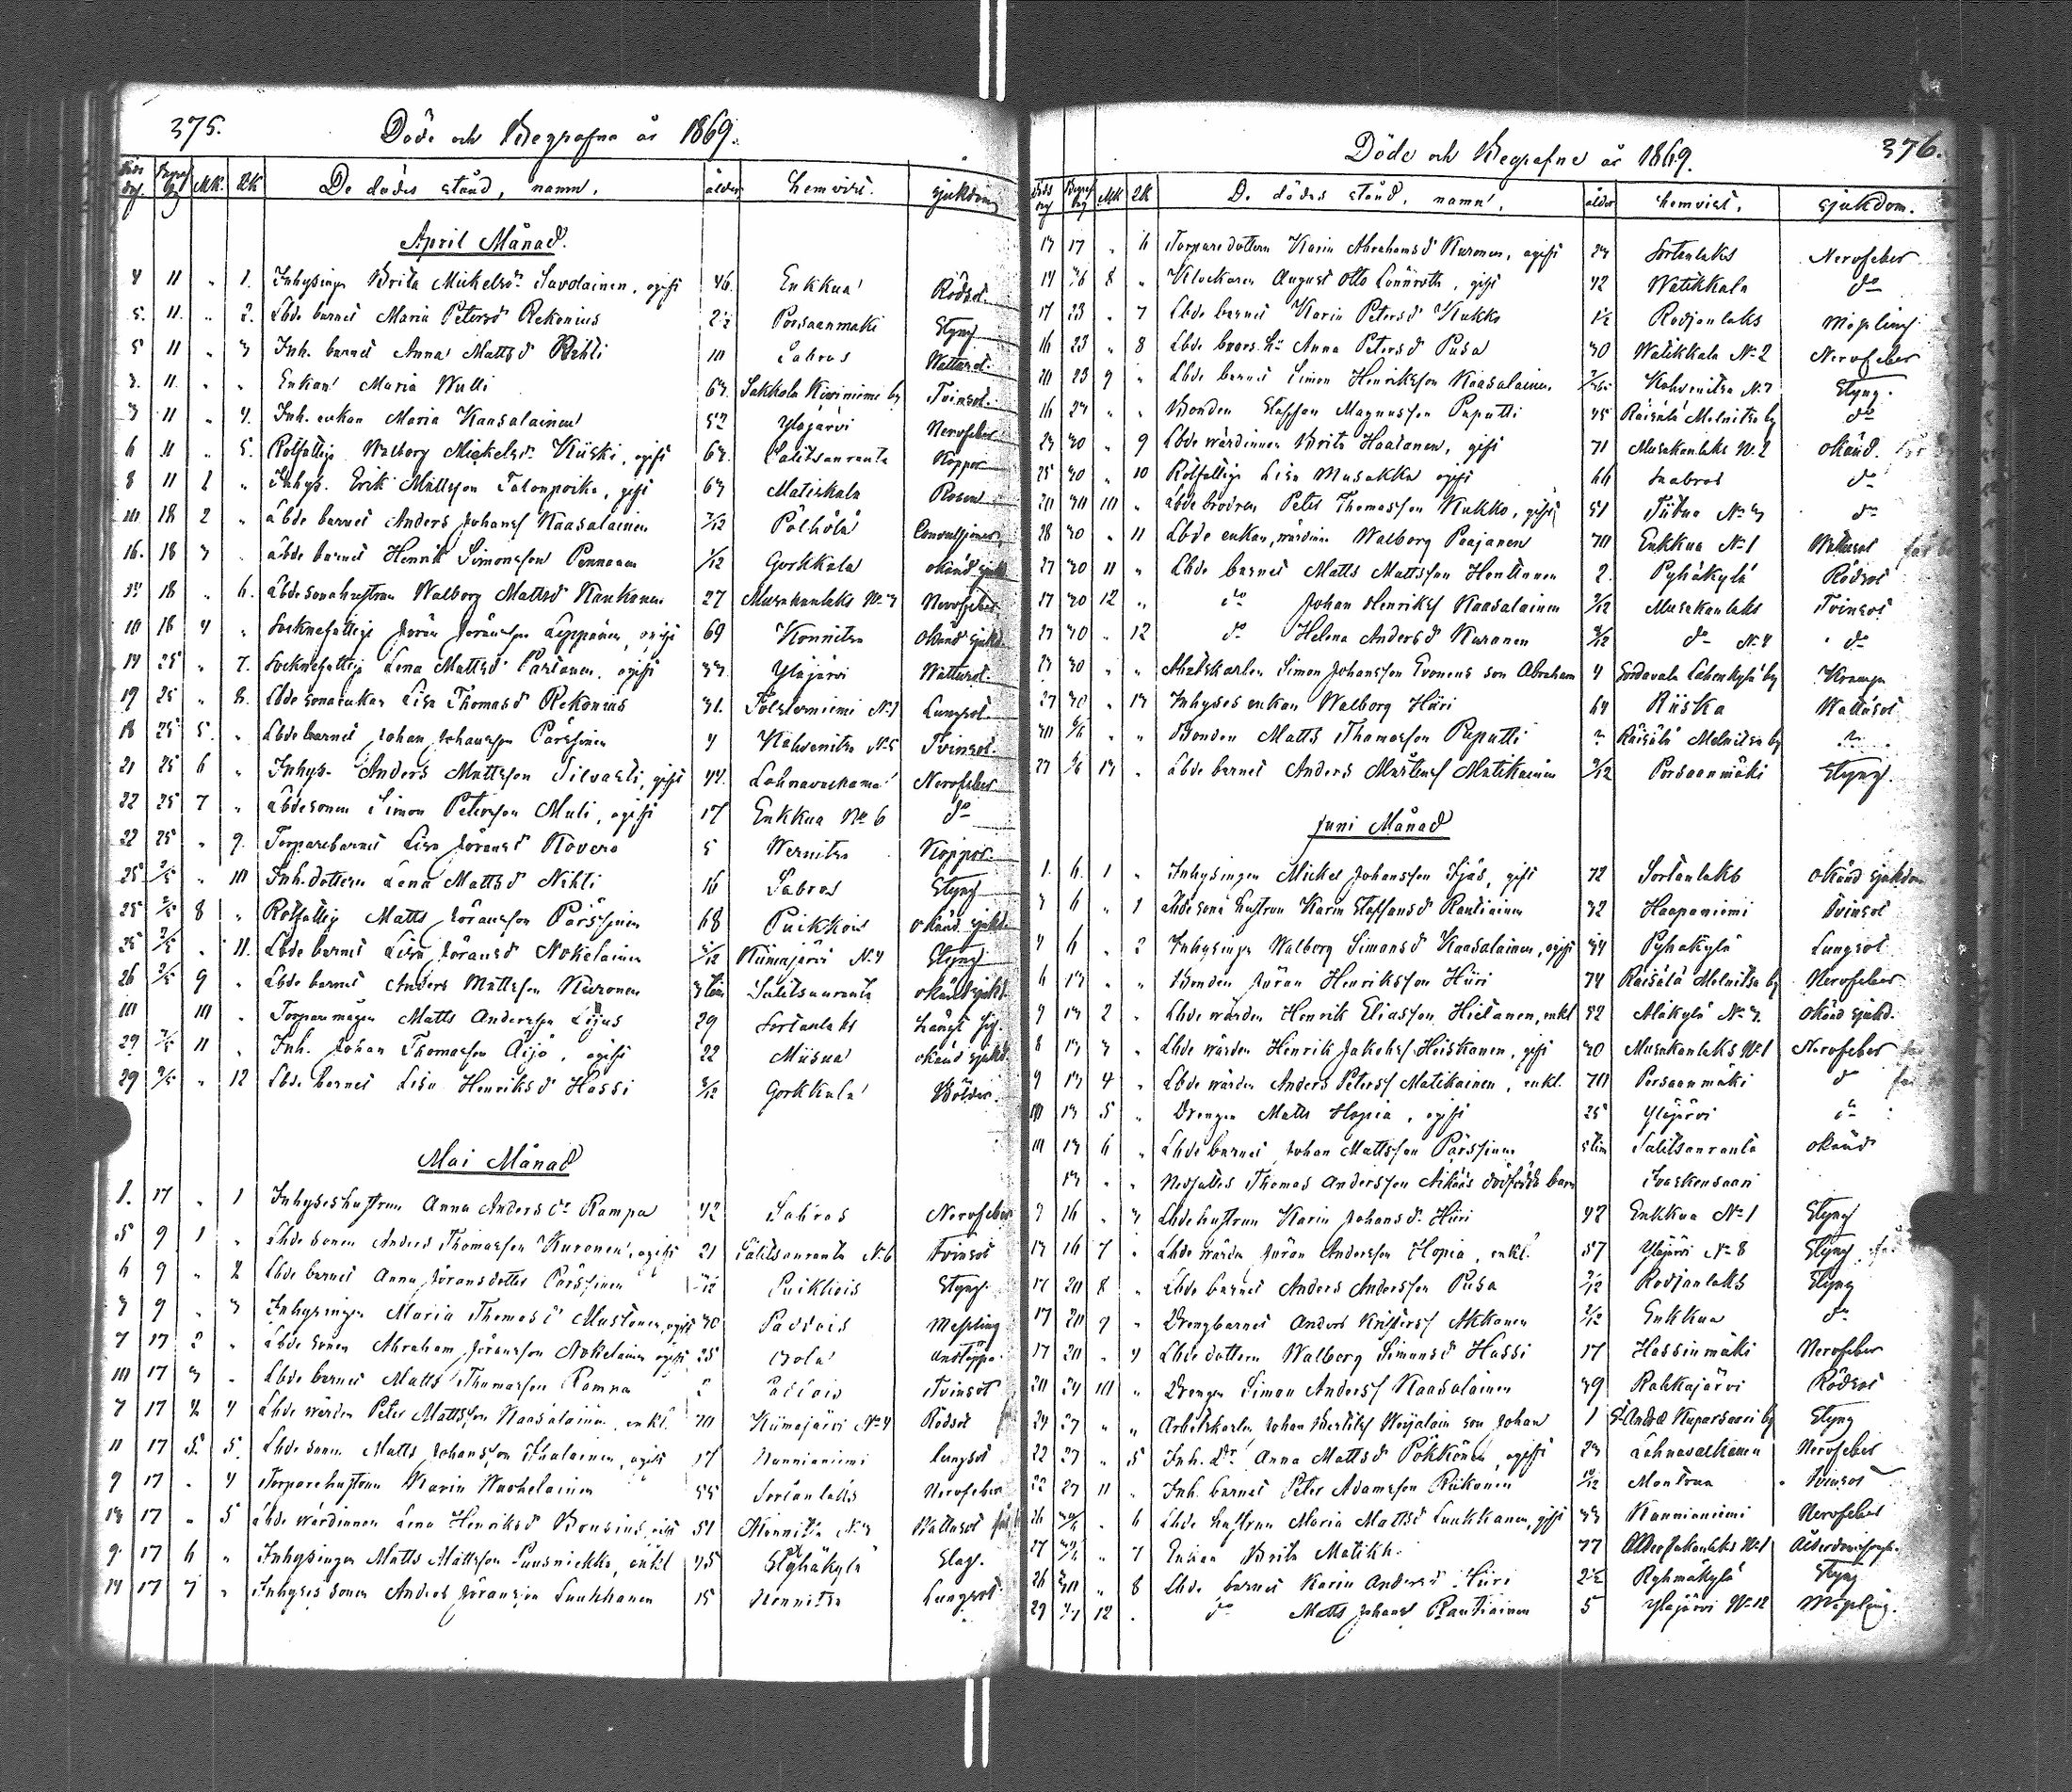 375.
Döde och Begrafne år 1869.
Döds dag. Begrf dg MK. QK De dödes stånd, namn. ålder hemvist. sjukdom
April Månad.
4 11 " 1. Inhysinge Brita Mickelsdr Savolainen, ogift 46. Enkkua Rödsot.
5. 11. " 2. Lbde barnet Maria Petersd Rekonius 2½ Porsaanmäki Styng
5 11 " 3 Inh. barnet Anna Mattsd Nihti 10 Labros Wattusot.
3. 11. " " Enkan Maria Wulli 63. Sakkola Kiviniemi by Tvinsot.
3 11 " 4. Inh. enkan Maria Kaasalainen 52 Yläjärvi Nervfeber
6 11 " 5. Rotfattige Walborg Mickelsdr Kiiski, ogift 63. Salitsanranta Koppor
8 11 1 " Inhys. Erik Mattsson Talonpoika, gift 63 Matiskala Rosen
10 18 2 " Lbde barnet Anders Johansf Kaasalainen 7/12 Pölhölä Convulsioner
16. 18 3 " Lbde barnet Henrik Simonsson Pennonen 1/12 Gorkkala okänd sjuk
15 18 " 6. Lbde sonahustrun Walborg Mattsd Kaukonen 27 Musakanlaks No 3 Nervfeber
10 18 4 " Socknefattige Jöran Jöransson Leppänen, ogift 69 Konnitsa Okänd sjukd.
14 25 " 7. Socknefattig Lena Mattsd Partanen, ogift 33. Yläjärvi Wattusot.
19 25 " 8. Lbde sonaenkan Lisa Thomasd Rekonius 31. No 1 Lungsot.
18 25 5. " Lbde barnet Johan Johansson Pärssinen 4 Kahvenitsa No 5 Tvinsot.
21 25 6 " Inhys. Anders Mattsson Silvasti, gift 44. Lahnavaehama Nervfeber
22 25 7 " Lbdesonen Simon Petersson Muli, ogift 17 Enkkua No 6 do
22 25 " 9. Torparebarnet Lisa Jöransd Kovero 5 Wernitsa Koppor.
25 2/5 " 10 Inh. dottern Lena Mattsd Nihti 16 Labros Styng
25 2/5 8 " Rotfattig Matts Jöransson Pärssinen 68 Puikkois okänd sjukd.
25 2/5 " 11. Lbde barnet Lisa Jöransd Nokelainen 5/12 Kiimajärvi No 4 Styng
26 2/5 9 " Lbde barnet Anders Mattsson Kuronen 3 tim Salitsanranta okänd sjukd.
10 10 " Torparemågen Matts Andersson Lijus 29 Sortanlaks hängt sig.
29 2/5 11 " Inh. Johan Thomasson Äijö, ogift 22 Miisua okänd sjukd.
29 2/5 " 12 Lbde barnet Lisa Henriksd Hassi 3/12 Gorkkala Bölder.
Mai Månad
1. 17 " 1 Inhyseshustrun Anna Andersdr Rampa 42 Labros Nervfeber
5 9 1 " Lbde sonen Anders Thomasson Kuronen, ogift 21 Salitsanranta No 6 Tvinsot
6 9 " 2 Lbde barnet Anna Jöransdotter Pärssinen Puikkois Styng.
3 9 " 3 Inhysingen Maria Thomasdr Mustonen, ogift 30 Messling
7 17 2 " Lbde sonen Abraham Jöransson Nokelainen ogift 25 andtäppa
10 17 3 " Lbde barnet Matts Thomasson Rampa Tvinsot
7 17 4 4 Lbde wärden Peter Mattsson Kaasalainen, enkl. 70 Kiimajärvi No 4 Rödsot
11 17 5. 5. Lbde sonen Matts Johansson Ihalainen, ogift 17 Kannianiemi lungsot
9 17 " 4 Torparehustrun Karin Nuohelainen 55 Sortanlaks Nervfeber
13 17 " 5 Lbde wärdinnan Lena Henriksd Brusius, gift 51 Konnitsa No 3 Wattusot
9. 17 6 " Inhysingen Matts Mattsson Puusniekka, enkl 45 Pyhäkylä Slag.
14 17 7 " Inhyses sonen Anders Jöransson Luukkanen 15 Konnitsa Lungsot.
376.
Döde och Begrafne år 1869.
Döds dg Begrf dg MK QK De dödes stånd, namn. ålder hemvist. sjukdom.
13 17 " 6 Torparedottern Karin Abrahamsd Kuronen, ogift 23 Sortanlaks Nervfeber
14 26 8 " Klockaren August Otto Lönnroth, gift 42 Watikkala do
17 23 " 7 Lbde barnet Karin Petersd Kukko 1½ Rodjanlaks Messling
16 23 " 8 Lbde Anna Petersd Pusa 30 Watikkala No 2 Nervfeber
20 23 9 " Lbde barnet Simon Henriksson Kaasalainen Kahvenitsa No 7 Styng.
16 23 " " Bonden Staffan Magnusson Paputti 45 Räisälä Melnitsa by do
23 30 " 9 Lbde wärdinnan Brita Haatanen, gift 71 Musakanlaks No 2 okänd.
25 30 " 10 Rotfattige Lisa Musakka ogift 66 Labros do
20 30 10 " Lbde brodren Peter Thomasson Kukko, gift 51 Tiitua No 3 do
28 30 " 11 Lbde enkan, wärdinn Walborg Paajanen 70 Enkkua No 1 Wattusot
27 30 11 " Lbde barnet Matts Mattsson Honkanen 2. Pyhäkylä Rödsot
17 30 12 " do Johan Henriksf Kaasalainen 2/12 Musakanlaks Tvinsot
27 30 " 12 do Helena Andersd Kuronen 8/12 do No 4 do
23 30 " " Simon Johansson Evonens son Abraham 4 Sordavala by Kramp
27 30 " 13 Inhyses enkan Walborg Hiiri 64 Riiska Wattusot
30 6/6 " " Bonden Matts Thomasson Paputti ? Räisälä Melnitsa by
27 6/6 13 " Lbde barnet Anders Mårtensf Matikainen 2/12 Porsaanmäki Styng.
Juni Månad
1. 6. 1 " Inhysingen Mickel Johansson Ijäs, gift 72 Sortanlaks okänd sjukdom
3 6 " 1 Lbde sona hustrun Karin Staffansd Rautiainen 32 Haapaniemi Tvinsot
4 6 " 2 Inhysinge Walborg Simonsd Kaasalainen, ogift 34 Pyhäkylä Lungsot
6 13 " " Bonden Jöran Henriksson Hiiri 74 Räisälä Melnitsa by Nervfeber
9 13 2 " Lbde wärden Henrik Eliasson Hietanen, enkl 52 Alakylä No 3. Okänd sjukd.
8 13 3 " Lbde wärden Henrik Jakobsf Heiskanen, gift 30 Musakanlaks No 1 Nervfeber
9 13 4 " Lbde wärden Anders Petersf Matikainen, enkl. 70 Porsaanmäki do
10 13 5 " Drengen Matts Hopia, ogift 25 Yläjärvi do
10 13 6 " Lbde barnet Johan Mattsson Pärssinen Salitsanranta okänd
13 " " Thomas Andersson dödfödda barn Ivaskensaari
9 16 " 3 Lbde hustrun Karin Johansdr Hiiri 42 Enkkua No 1 Styng
13 16 7 " Lbde wärden Jöran Andersson Hopia, enkl. 57 Yläjärvi No 8 Styng
17 20 8 " Lbde barnet Anders Andersson Pusa 2/12 Rodjanlaks Styng
17 20 9 " Drengbarnet Anders Kristersf Akkanen 2/12 Enkkua do
17 20 " 4 Lbde dottern Walborg Simonsd Hassi 17 Hassinmäki Nervfeber
20 24 10 " Drengen Simon Andersf Kaasalainen 39 Rahkajärvi Rödsot
24 27 " " Arbetskarlen Johan Bertilsf Weijalain son Johan 1 St Andræ Kuparsaari by Styng
22 27 " 5 Inh. dr. Anna Mattsd Pökkönen, ogift 23 Lahnavaekama Nervfeber
22 27 11 " Inh. barnet Peter Adamsson Riikonen 10/12 Montrua Tvinsot
26 " 6 Lbde hustrun Maria Mattsd Luukkanen, gift 33 Kannianiemi Nervfeber
27 " 7 Enkan Brita Matikk. 77 No 1 Ålderdomssv.
26 " 8 Lbde barnet Karin Andersd Hiiri 2½ Ryhmäkylä Styng
29 12 " do Matts Johansf Rautiainen 5 Yläjärvi No 12 Messling.